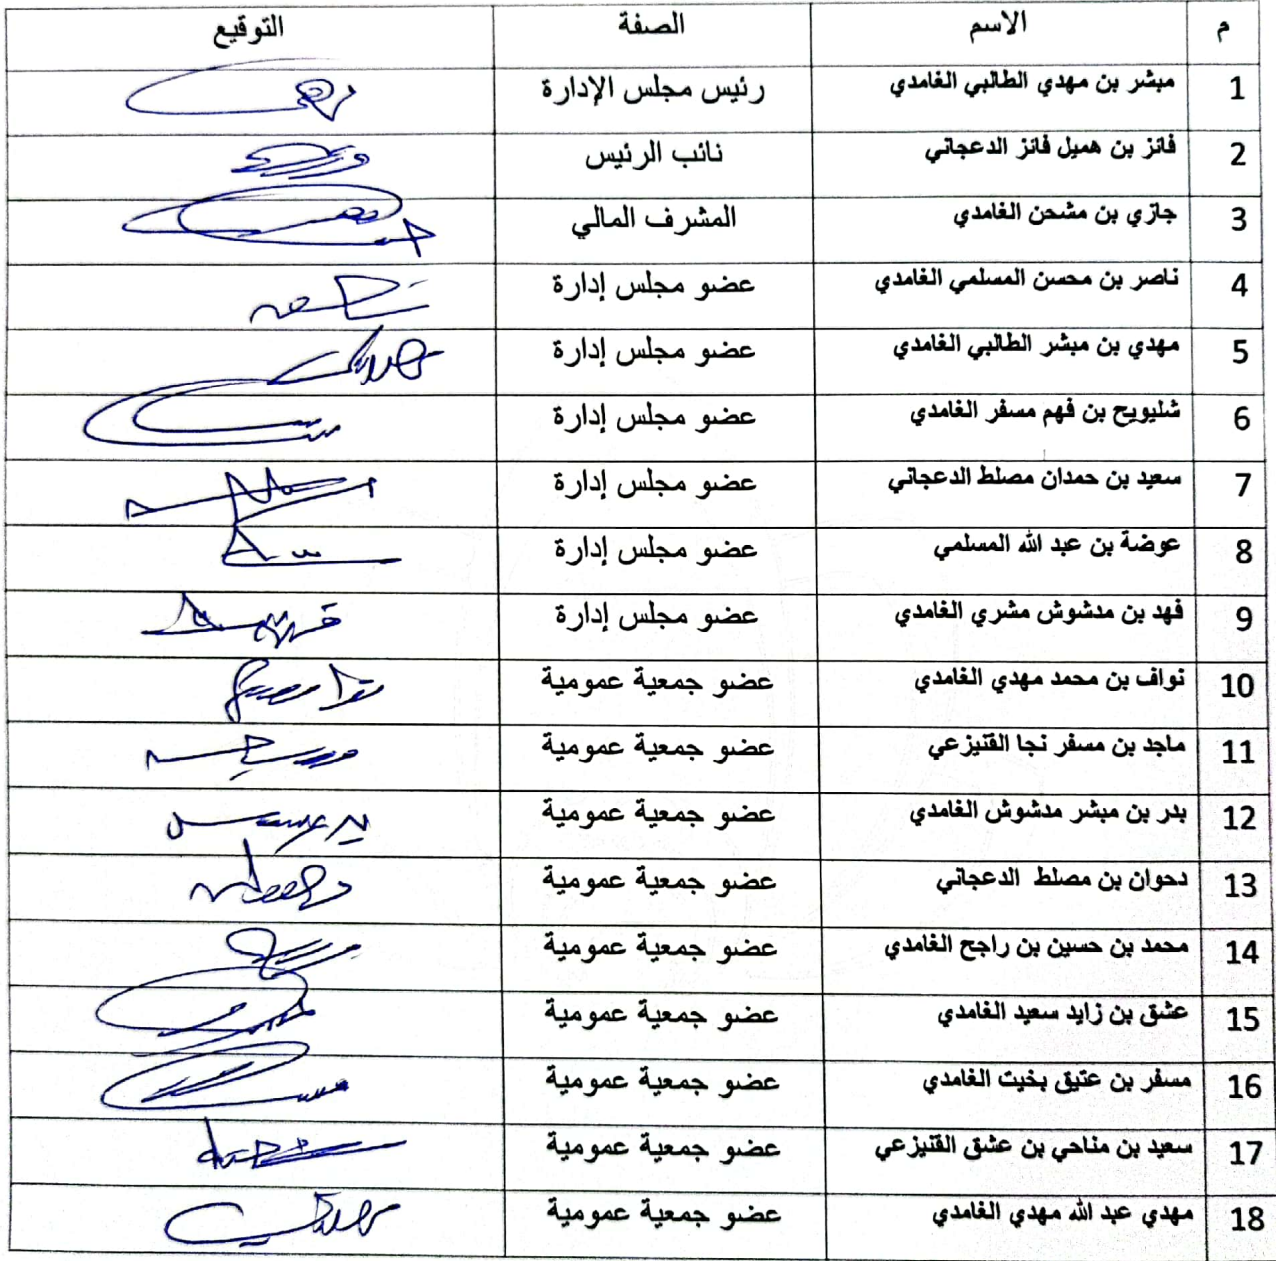 م الاسم الصفة التوقيع
1 مبشر بن مهدي الطالبي الغامدي رئيس مجلس الإدارة
2 فائز بن هميل فائز الدعجاني نائب الرئيس
3 جازي بن مشحن الغامدي المشرف المالي
4 ناصر بن محسن المسلمي الغامدي عضو مجلس إدارة
5 مهدي بن مبشر الطالبي الغامدي عضو مجلس إدارة
6 شليويح بن فهم مسفر الغامدي عضو مجلس إدارة
7 سعيد بن حمدان مصلط الدعجاني عضو مجلس إدارة
8 عوضة بن عبد الله المسلمي عضو مجلس إدارة
9 فهد بن مدشوش مشري الغامدي عضو مجلس إدارة
10 نواف بن محمد مهدي الغامدي عضو جمعية عمومية
11 ماجد بن مسفر نجا القنيزعي عضو جمعية عمومية
12 بدر بن مبشر مدشوش الغامدي عضو جمعية عمومية
13 دحوان بن مصلط الدعجاني عضو جمعية عمومية
14 محمد بن حسين بن راجح الغامدي عضو جمعية عمومية
15 عشق بن زايد سعيد الغامدي عضو جمعية عمومية
16 مسفر بن عتيق بخيت الغامدي عضو جمعية عمومية
17 سعيد بن مناحي بن عشق القنيزعي عضو جمعية عمومية
18 مهدي عبد الله مهدي الغامدي عضو جمعية عمومية